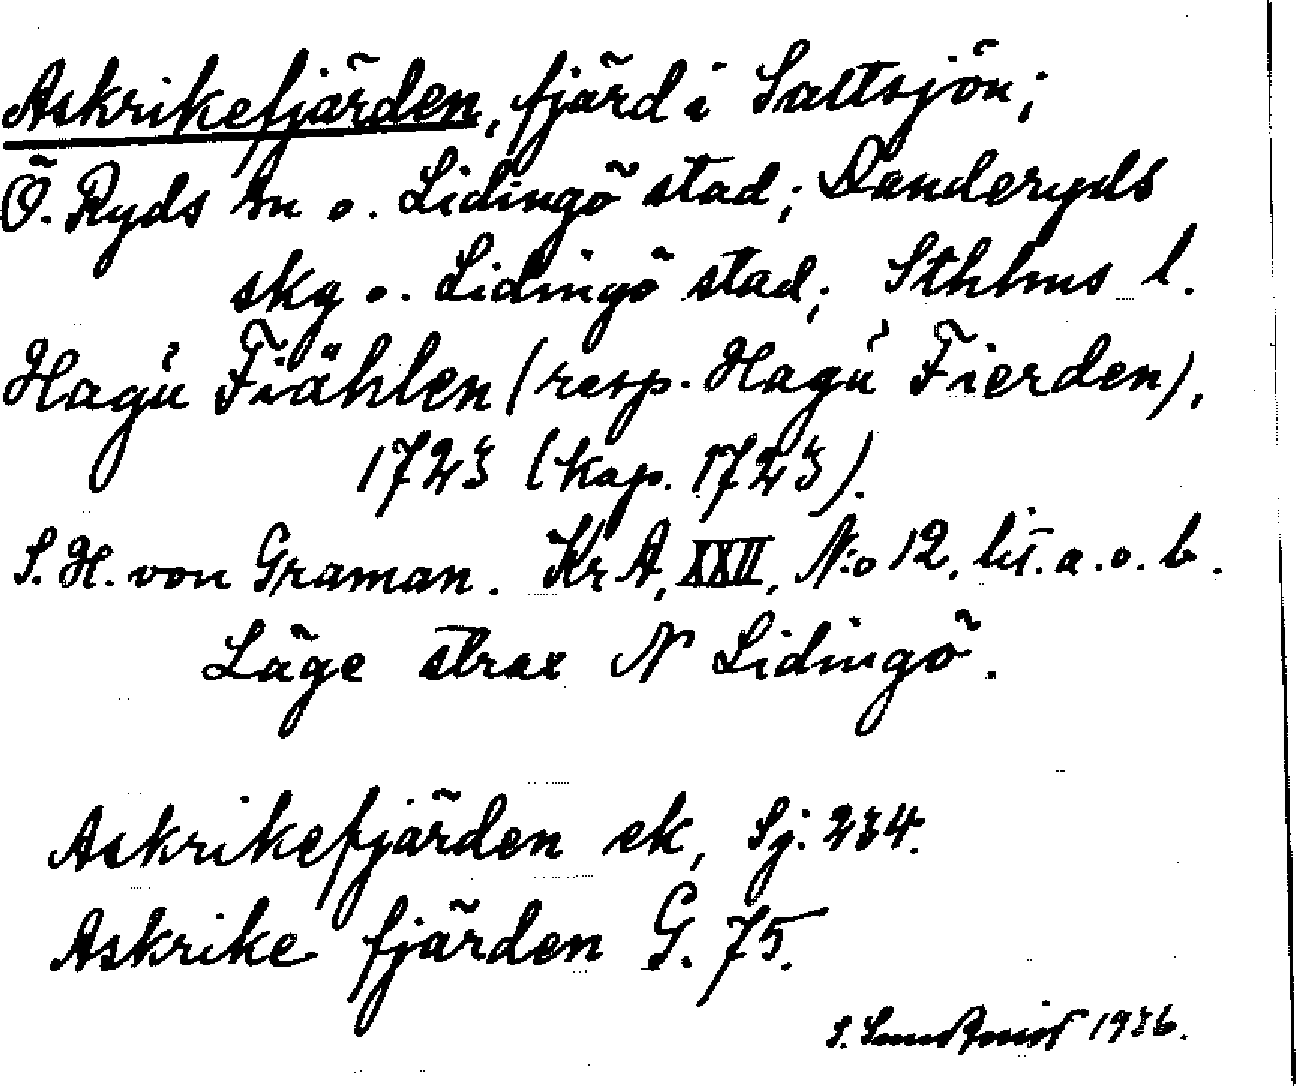 Askrikefjärden, fjärd i Saltsjön;
Ö. Ryds sn o. Lidingö stad; Danderyds
skg o. Lidingö stad; Sthlms l.
Hagú Fiählen (resp. Hagú Fierden),
1723 (kap. 1723).
S. H. von Graman. KrA, XXII, N:o 12, lit. a. o. b.
Läge strax N Lidingö.
Askrikefjärden ek, Sj. 234.
Askrike fjärden G. 75.
S. 1936.